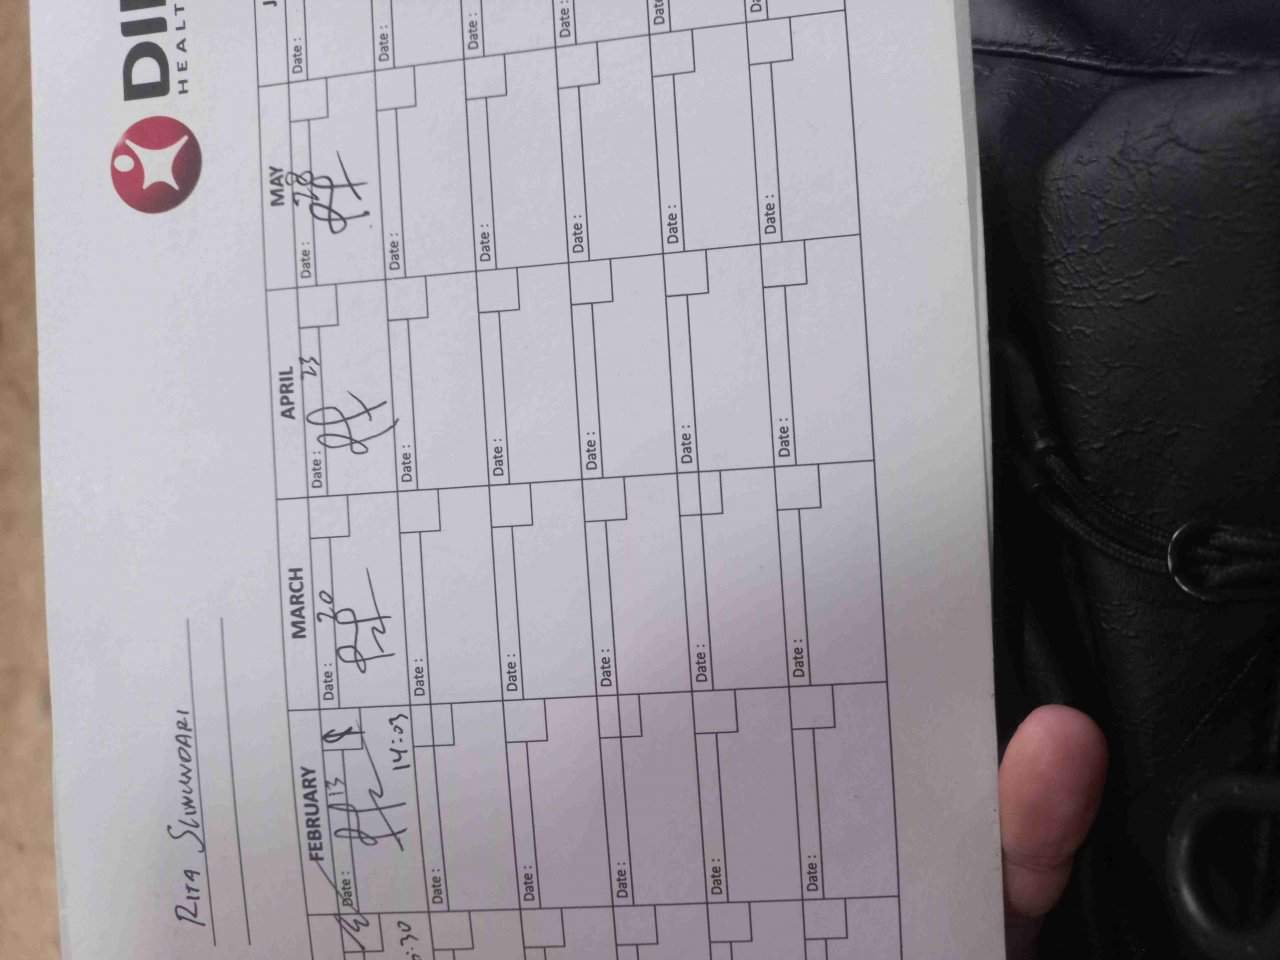 HEALT
RITA SLIWUNDARI
FEBRUARY MARCH APRIL MAY
Date : 13 8 Date : 20 Date : 23 Date : 28 Date :
14:03
Date : Date : Date : Date : Date :
Date : Date : Date : Date : Date :
Date : Date : Date : Date : Date :
Date : Date : Date : Date :
Date : Date : Date : Date :